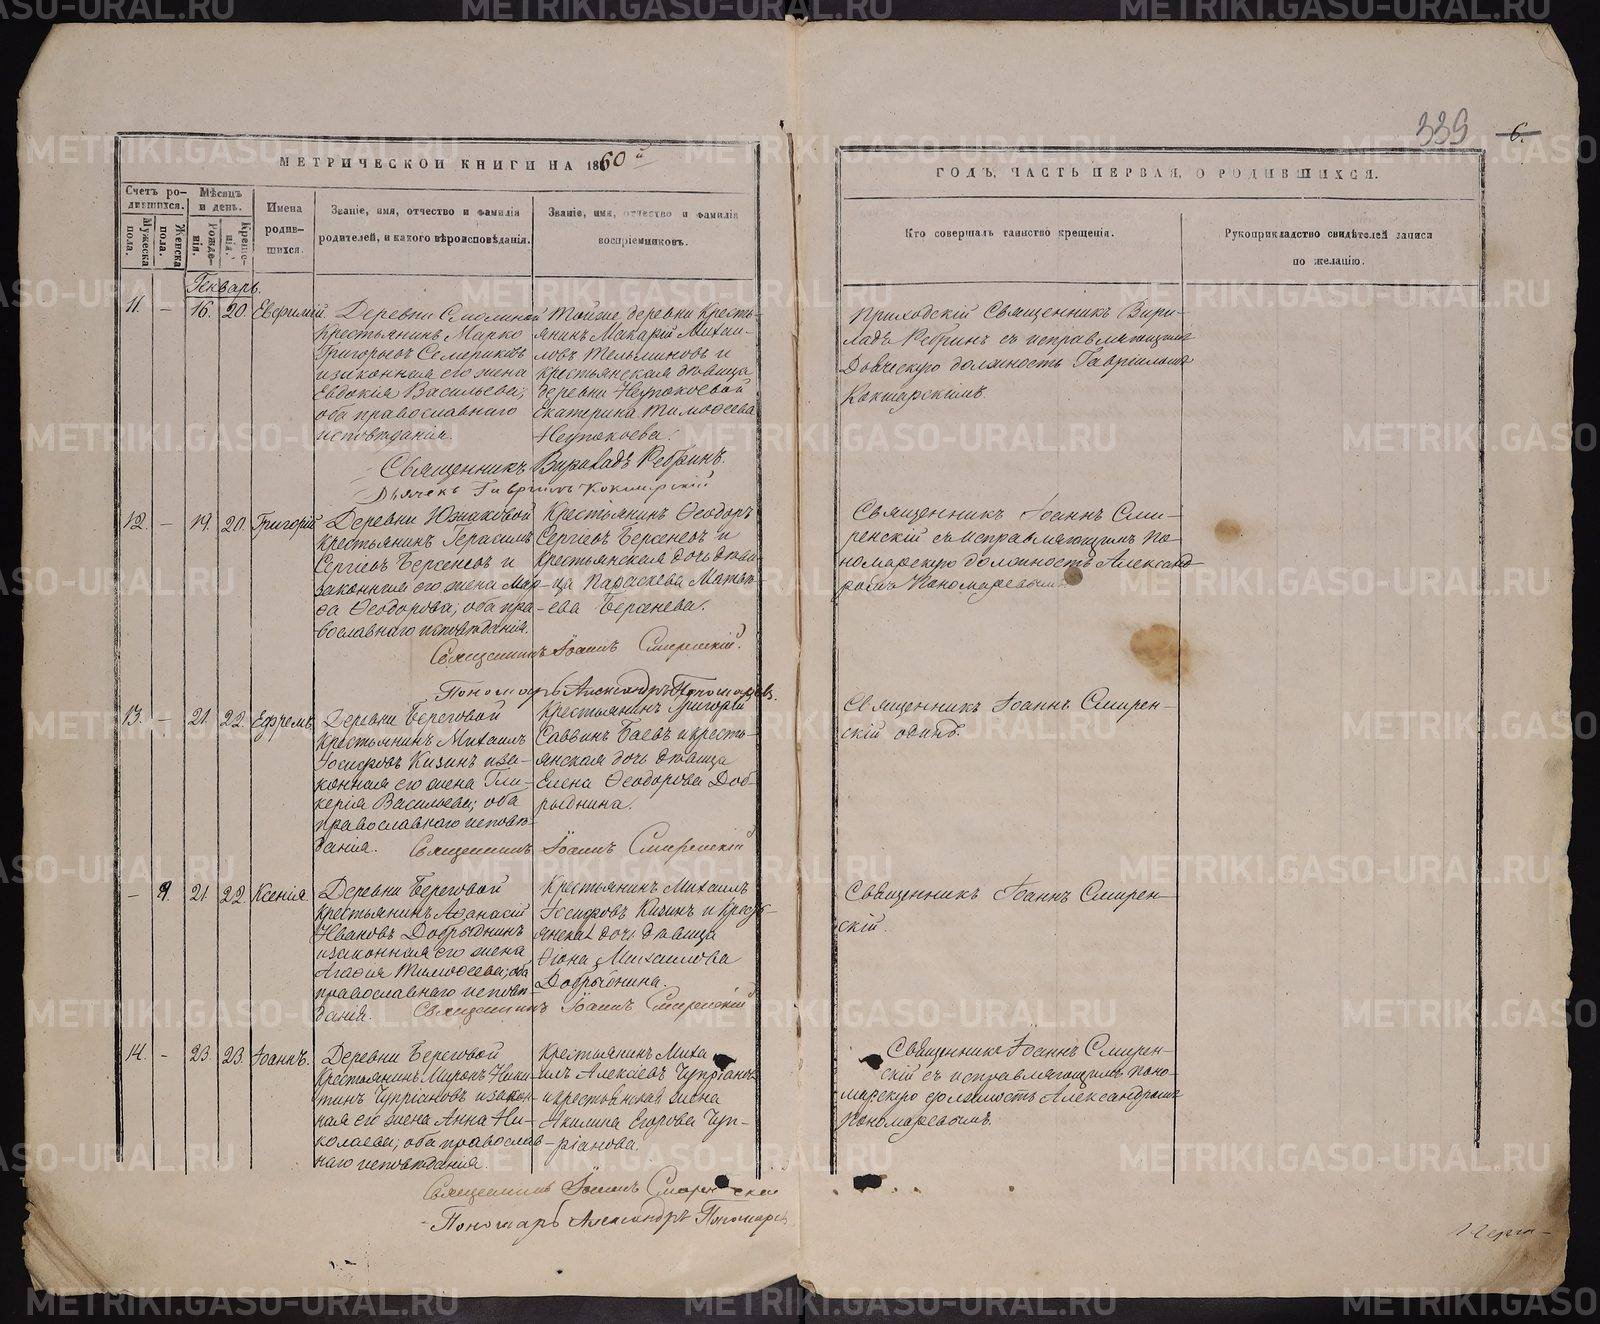 339 6.
МЕТРИЧЕСКОЙ КНИГИ НА 1860й
ГОДЪ, ЧАСТЬ ПЕРВАЯ, О РОДИВШИХСЯ.
Счетъ ро-
дившихся.
Мужеска
пола.
Женска
пола.
Мѣсяцъ
и день.
Рожде-
нія.
Креще-
нія.
Имена
родив-
шихся.
Званіе, имя, отчество и фамилія
родителей, и какого вѣроисповѣданія.
Званіе, имя, отчество и фамилія
воспріемниковъ.
Кто совершалъ таинство крещенія.
Рукоприкладство свидѣтелей записи
по желанію.
Генварь.
11. – 16. 20. Евфимій.
Деревни
Крестьянинъ Марко
Григорьевъ Семериковъ
и законная его жена
Евдокія Васильева;
оба православнаго
исповѣданія.
Тойже деревни Кресть-
янинъ Макарій Михаи-
ловъ Тельминовъ и
крестьянская дѣвица
деревни Неупокоевой
Екатерина Тимоѳеева
Неупокоева.
Приходскій Священникъ Вири-
ладъ Ребринъ съ исправляющимъ
должность Гавріиломъ
Кокшарскимъ.
Священникъ Вириладъ Ребринъ.
Дьячекъ Гавріилъ Кокшарскій
12. – 19. 20. Григорій
Деревни Южаковой
крестьянинъ Герасимъ
Сергіевъ Берсеневъ и
законная его жена Мар-
ѳа Ѳеодорова; оба пра-
вославнаго исповѣданія.
Крестьянинъ Ѳеодоръ
Сергіевъ Берсеневъ и
Крестьянская дочь дѣви-
ца Параскева Матвѣ-
ева Берсенева.
Священникъ Іоаннъ Сми-
ренскій съ исправляющимъ по-
номарскую должность Александ-
ромъ Пономаревымъ
Священникъ Іоаннъ Смиренскій.
Пономарь Александръ Пономаревъ.
13. – 21. 22. Ефремъ.
Деревни Береговой
Крестьянинъ Михаилъ
Іосифовъ Кизинъ и за-
конная его жена Гли-
керія Васильева; оба
православнаго исповѣ-
данія.
Крестьянинъ Григорій
Саввинъ Баевъ и кресть-
янская дочь дѣвица
Елена Ѳеодорова Доб-
рыднина.
Священникъ Іоаннъ Смирен-
скій одинъ.
Священникъ Іоаннъ Смиренскій
– 9. 21. 22. Ксенія.
Деревни Береговой
Крестьянинъ Аѳанасій
Ивановъ Добрыднинъ
и законная его жена
Агафія Тимоѳеева; оба
православнаго исповѣ-
данія.
Крестьянинъ Михаилъ
Іосифовъ Кизинъ и Кресть-
янская дочь дѣвица
Михаилова
Добрыднина.
Священникъ Іоаннъ Смирен-
скій.
Священникъ Іоаннъ Смиренскій
14. – 23. 23. Іоаннъ.
Деревни Береговой
Крестьянинъ Миронъ Ники-
тинъ Чупріяновъ и закон-
ная его жена Анна Ни-
колаева; оба православ-
наго исповѣданія.
Крестьянинъ Миха-
илъ Алексѣевъ Чупріяновъ
и крестьянская жена
Акилина Егорова Чуп-
ріанова.
Священникъ Іоаннъ Смирен-
скій съ исправляющимъ поно-
марскую должность Александромъ
Пономаревымъ.
Священникъ Іоаннъ Смиренскій
Пономарь Александръ Пономаревъ
METRIKI.GASO-URAL.RU